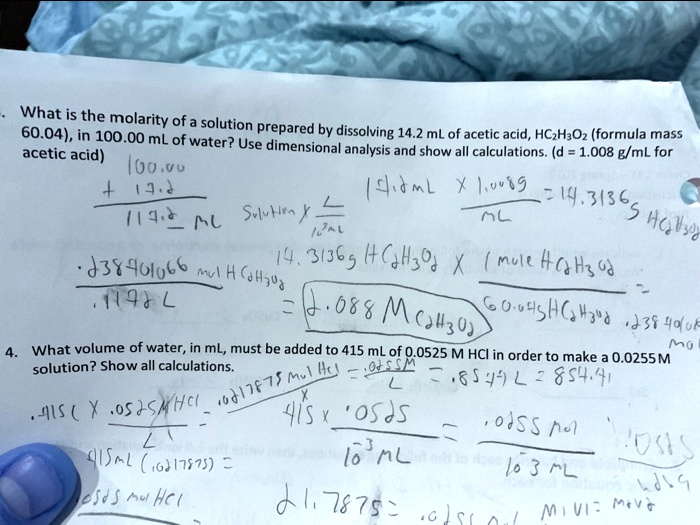 . What is the molarity of a solution prepared by dissolving 14.2 mL of acetic acid, HC₂H₃O₂ (formula mass
60.04), in 100.00 mL of water? Use dimensional analysis and show all calculations. (d = 1.008 g/mL for
acetic acid)
100.00
+ 14.2
114.2 mL Solution x L / 10³mL
14.2 mL x 1.008g / mL = 14.3136g
14.3136g HC₂H₃O₂ x 1 mole HC₂H₃O₂ / 60.04g HC₂H₃O₂ =
.2384
.238401066 mol HC₂H₃O₂ / .1142 L = 2.088 M C₂H₃O₂
4. What volume of water, in mL, must be added to 415 mL of 0.0525 M HCl in order to make a 0.0255 M
solution? Show all calculations.
.415 L x .0525M HCl / L = .0217875 mol HCl = .0255M / L = .8544 L = 854.41
415 x .0525 / 10⁻³ mL = .0255 mol / 10⁻³ mL
415mL (.0217875) =
.0525 mol HCl
21.7875 =
M1V1 = M2V2